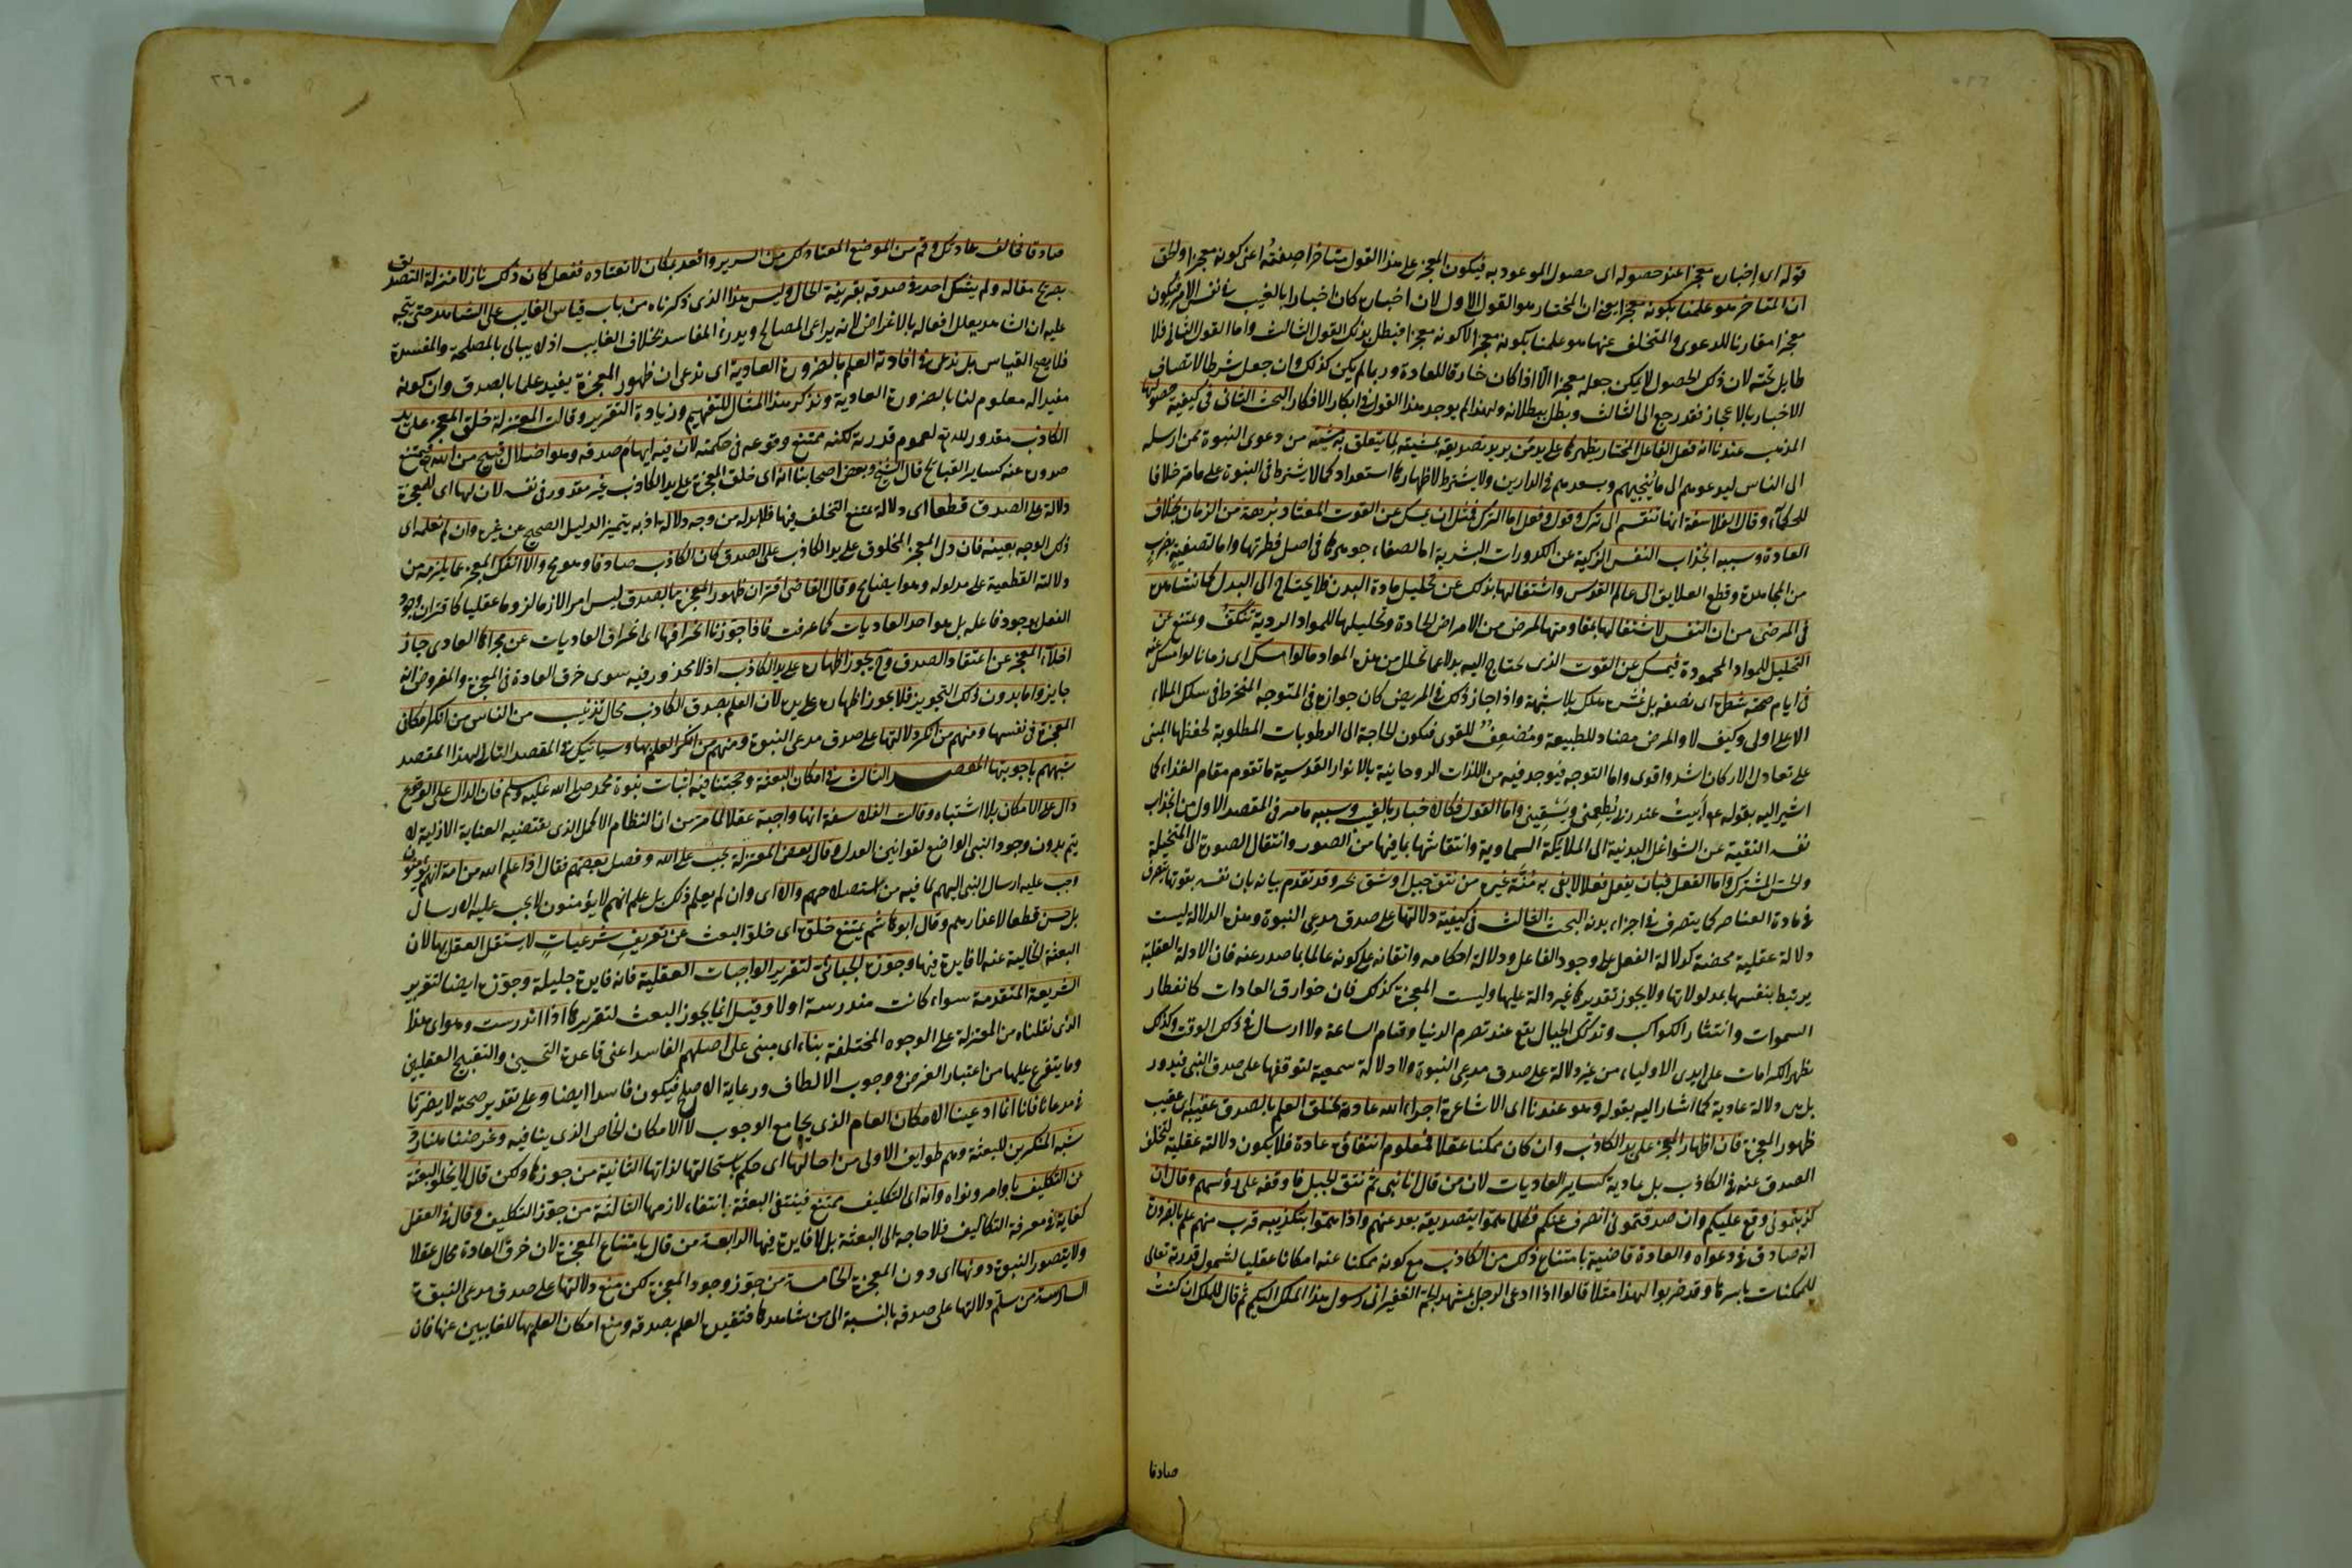 قوله اى اخباره معجزا عند حصوله اى حصول الموعود به فيكون المعجز على هذا القول متاخرا صفته اعنى كونه معجزا والحق
ان المتاخر هو علمنا بكونه معجزا يعنى ان المختار هو القول الاول لان اخباره كان اخبارا بالغيب فى نفس الامر فيكون
معجزا مقارنا للدعوى والمتخلف عنها هو علمنا بكونه معجزا لا كونه معجزا فبطل بذلك القول الثالث واما القول الثانى فلا
طايل تحته لان ذلك الحصول لا يمكن جعله معجزا الا اذا كان خارقا للعادة وربما لم يكن كذلك وان جعل شرطا لاتصاف
الاخبار بالاعجاز فقد رجع الى الثالث وبطل ببطلانه ولهذا لم يوجد هذا القول فى ابكار الافكار البحث الثانى فى كيفية حصولها
المذهب عندنا انه فعل الفاعل المختار يظهرها على يد من يريد تصديقه بمشيته لما يتعلق به مشيته من دعوى النبوة ممن ارسله
الى الناس ليدعوهم الى ما ينجيهم ويسعدهم فى الدارين ولا يشترط لاظهارها استعداد كما لا يشترط فى النبوة على ما مر خلافا
للحكماء وقال الفلاسفة انها تنقسم الى ترك وقول وفعل اما الترك فمثل ان يمسك عن القوت المعتاد برهة من الزمان بخلاف
العادة وسببه انجذاب النفس الزكية عن الكدورات البشرية اما لصفاء جوهرها فى اصل فطرتها واما لتصفيتها بضرب
من المجاهدة وقطع العلايق الى عالم القدس واشتغالها بذلك عن تحليل مادة البدن فلا يحتاج الى البدل كما نشاهده
فى المرضى من ان النفس لاشتغالها بمقاومتها للمرض من الامراض الحادة وتحليلها للمواد الردية تنكف وتمتنع عن
التحليل للمواد المحمودة فيمسك عن القوت الذى يحتاج اليه بدلا عما تحلل من هذه المواد ما لو امسك اى زمانا لو امسك عنه
فى ايام صحته شطره اى نصفه بل عشره هلك بلا شبهة واذا جاز ذلك فى المريض كان جوازه فى المتوجه المنخرط فى سلك الملاء
الاعلى اولى وكيف لا والمرض مضاد للطبيعة ومضعف للقوى فيكون الحاجة الى الرطوبات المطلوبة لحفظها المبنى
على تعادل الاركان اشد واقوى واما التوجه فيوجد فيه من اللذات الروحانية بالانوار القدسية ما تقوم مقام الغذاء كما
اشير اليه بقوله عم ابيت عند ربى يطعمنى ويسقينى واما القول فكالاخبار بالغيب وسببه ما مر فى المقصد الاول من انجذاب
نفسه النقية عن الشواغل البدنية الى الملايكة السماوية وانتقاشها بما فيها من الصور وانتقال الصورة الى المتخيلة
والحس المشترك واما الفعل فبان يفعل فعلا لا يفى به منة غيره من نتق جبل او شق بحر وقد تقدم بيانه بان نفسه بقوتها يتصرف
فى مادة العناصر كما يتصرف فى اجزاء بدنه البحث الثالث فى كيفية دلالتها على صدق مدعى النبوة وهذه الدلالة ليست
دلالة عقلية محضة كدلالة الفعل على وجود الفاعل ودلالة احكامه واتقانه على كونه عالما بما صدر عنه فان الادلة العقلية
يرتبط بنفسها بمدلولاتها ولا يجوز تقديرها غير دالة عليها وليست المعجزة كذلك فان خوارق العادات كانفطار
السموات وانتثار الكواكب وتدكدك الجبال يقع عند تصرم الدنيا وقيام الساعة ولا ارسال فى ذلك الوقت وكذلك
يظهر الكرامات على ايدى الاولياء من غير دلالة على صدق مدعى النبوة ولا دلالة سمعية لتوقفها على صدق النبى فيدور
بل هى دلالة عادية كما اشار اليه بقوله وهو عندنا اى الاشاعرة اجراء الله عادته بخلق العلم بالصدق عقيبه اى عقيب
ظهور المعجزة فان اظهار المعجز على يد الكاذب وان كان ممكنا عقلا فمعلوم انتفاؤه عادة فلا يكون دلالته عقلية لتخلف
الصدق عنه فى الكاذب بل عادية كساير العاديات لان من قال انا نبى ثم نتق الجبل فاوقفه على رؤسهم وقال ان
كذبتمونى وقع عليكم وان صدقتمونى انصرف عنكم فكلما هموا بتصديقه بعد عنهم واذا هموا بتكذيبه قرب منهم علم بالضرورة
انه صادق فى دعواه والعادة قاضية بامتناع ذلك من الكاذب مع كونه ممكنا عنه امكانا عقليا لشمول قدرته تعالى
للممكنات باسرها وقد ضربوا لهذا مثلا قالوا اذا ادعى الرجل بمشهد الجم الغفير انى رسول هذا الملك اليكم ثم قال للملك ان كنت
صادقا
٢٦٠
صادقا فخالف عادتك وقم من الموضع المعتاد لك من السرير واقعد بمكان لا تعتاده ففعل كان ذلك نازلا منزلة التصديق
بصريح مقاله ولم يشك احد فى صدقه بقرينة الحال وليس هذا الذى ذكرناه من باب قياس الغايب على الشاهد حتى يتجه
عليه ان الشاهد يعلل افعاله بالاغراض لانه يراعى المصالح ويدرء المفاسد بخلاف الغايب اذ لا يبالى بالمصلحة والمفسدة
فلا يصح القياس بل ندعى فى افادته العلم بالضرورة العادية اى ندعى ان ظهور المعجزة يفيد علما بالصدق وان كونه
مفيدا له معلوم لنا بالضرورة العادية ونذكر هذا المثال للتفهيم وزيادة التقرير وقالت المعتزلة خلق المعجز على يد
الكاذب مقدور لله تع لعموم قدرته لكنه ممتنع وقوعه فى حكمته لان فيه ايهام صدقه وهو اضلال قبيح من الله فيمتنع
صدوره عنه كساير القبايح قال الشيخ وبعض اصحابنا انه اى خلق المعجزة على يد الكاذب غير مقدور فى نفسه لان لها اى للمعجزة
دلالة على الصدق قطعا اى دلالة يمتنع التخلف فيها فلا بد له من وجه دلالة اذ به يتميز الدليل الصحيح عن غيره وان لم نعلمه اى
ذلك الوجه بعينه فان دل المعجز المخلوق على يد الكاذب على الصدق كان الكاذب صادقا وهو مح والا انفك المعجز عما يلزمه من
دلالته القطعية على مدلوله وهو ايضا مح وقال القاضى اقتران ظهور المعجزة بالصدق ليس امرا لازما لزوما عقليا كاقتران وجود
الفعل بوجود فاعله بل هو احد العاديات كما عرفت فاذا جوزنا انخراقها اى انخراق العاديات عن مجراها العادى جاز
اخلاء المعجزة عن اعتقاد الصدق وح يجوز اظهاره على يد الكاذب اذ لا محذور فيه سوى خرق العادة فى المعجزة والمفروض انه
جايز واما بدون ذلك التجويز فلا يجوز اظهاره على يده لان العلم بصدق الكاذب محال تذنيب من الناس من انكر امكان
المعجزة فى نفسها ومنهم من انكر دلالتها على صدق مدعى النبوة ومنهم من انكر العلم بها وسياتيك فى المقصد التالى لهذا المقصد
شبههم باجوبتها المقصد الثالث فى امكان البعثة وحجتنا فيه اثبات نبوة محمد صلى الله عليه وسلم فان الدال على الوقوع
دال على الامكان بلا اشتباه وقالت الفلاسفة انها واجبة عقلا لما مر من ان النظام الاكمل الذى يقتضيه العناية الازلية لا
يتم بدون وجود النبى الواضع لقوانين العدل وقال بعض المعتزلة يجب على الله وفصل بعضهم فقال اذا علم الله من امة انهم يؤمنون
وجب عليه ارسال النبى اليهم لما فيه من استصلاحهم والا اى وان لم يعلم ذلك بل علم انهم لا يؤمنون لا يجب عليه الارسال
بل حسن قطعا لاعذارهم وقال ابو هاشم يمتنع خلوه اى خلو البعث عن تعريف شرعيات لا يستقل العقل بها لان
البعثة الخالية عنه لا فايدة فيها وجوزه الجبائى لتقرير الواجبات العقلية فانه فايدة جليلة وجوزه ايضا لتقرير
الشريعة المتقدمة سواء كانت مندرسة اولا وقيل انما يجوز البعث لتقريرها اذا اندرست وهو اى هذا
الذى نقلناه من المعتزلة على الوجوه المختلفة بناء اى مبنى على اصلهم الفاسد اعنى قاعدة التحسين والتقبيح العقليين
وما يتفرع عليها من اعتبار الغرض ووجوب الالطاف ورعاية الاصلح فيكون فاسدا ايضا وعلى تقدير صحته لا يضرنا
فى مدعانا فانا انما ادعينا الامكان العام الذى يجامع الوجوب لا الامكان الخاص الذى ينافيه وغرضنا هنا رد
شبه المنكرين للبعثة وهم طوايف الاولى من احالها اى حكم باستحالتها لذاتها الثانية من جوزها ولكن قال لا يخلو البعثة
عن التكليف باوامر ونواه وانه اى التكليف ممتنع فينتفى البعثة بانتفاء لازمها الثالثة من جوز التكليف وقال فى العقل
كفاية فى معرفة التكاليف فلا حاجة الى البعثة بل لا فايدة فيها الرابعة من قال بامتناع المعجزة لان خرق العادة محال عقلا
ولا يتصور النبوة دونها اى دون المعجزة الخامسة من جوز وجود المعجزة لكن منع دلالتها على صدق مدعى النبوة
السادسة من سلم دلالتها على صدقه بالنسبة الى من شاهدها فتفيده العلم بصدقه ومنع امكان العلم بها للغايبين عنها فان